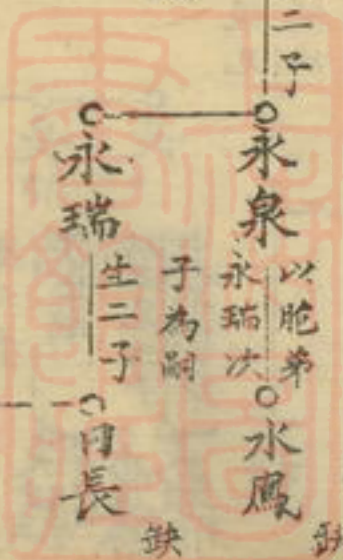 二子
永泉
以胞弟
永瑞次
子為嗣
水鳳
缺
永瑞
生二子
日長
缺